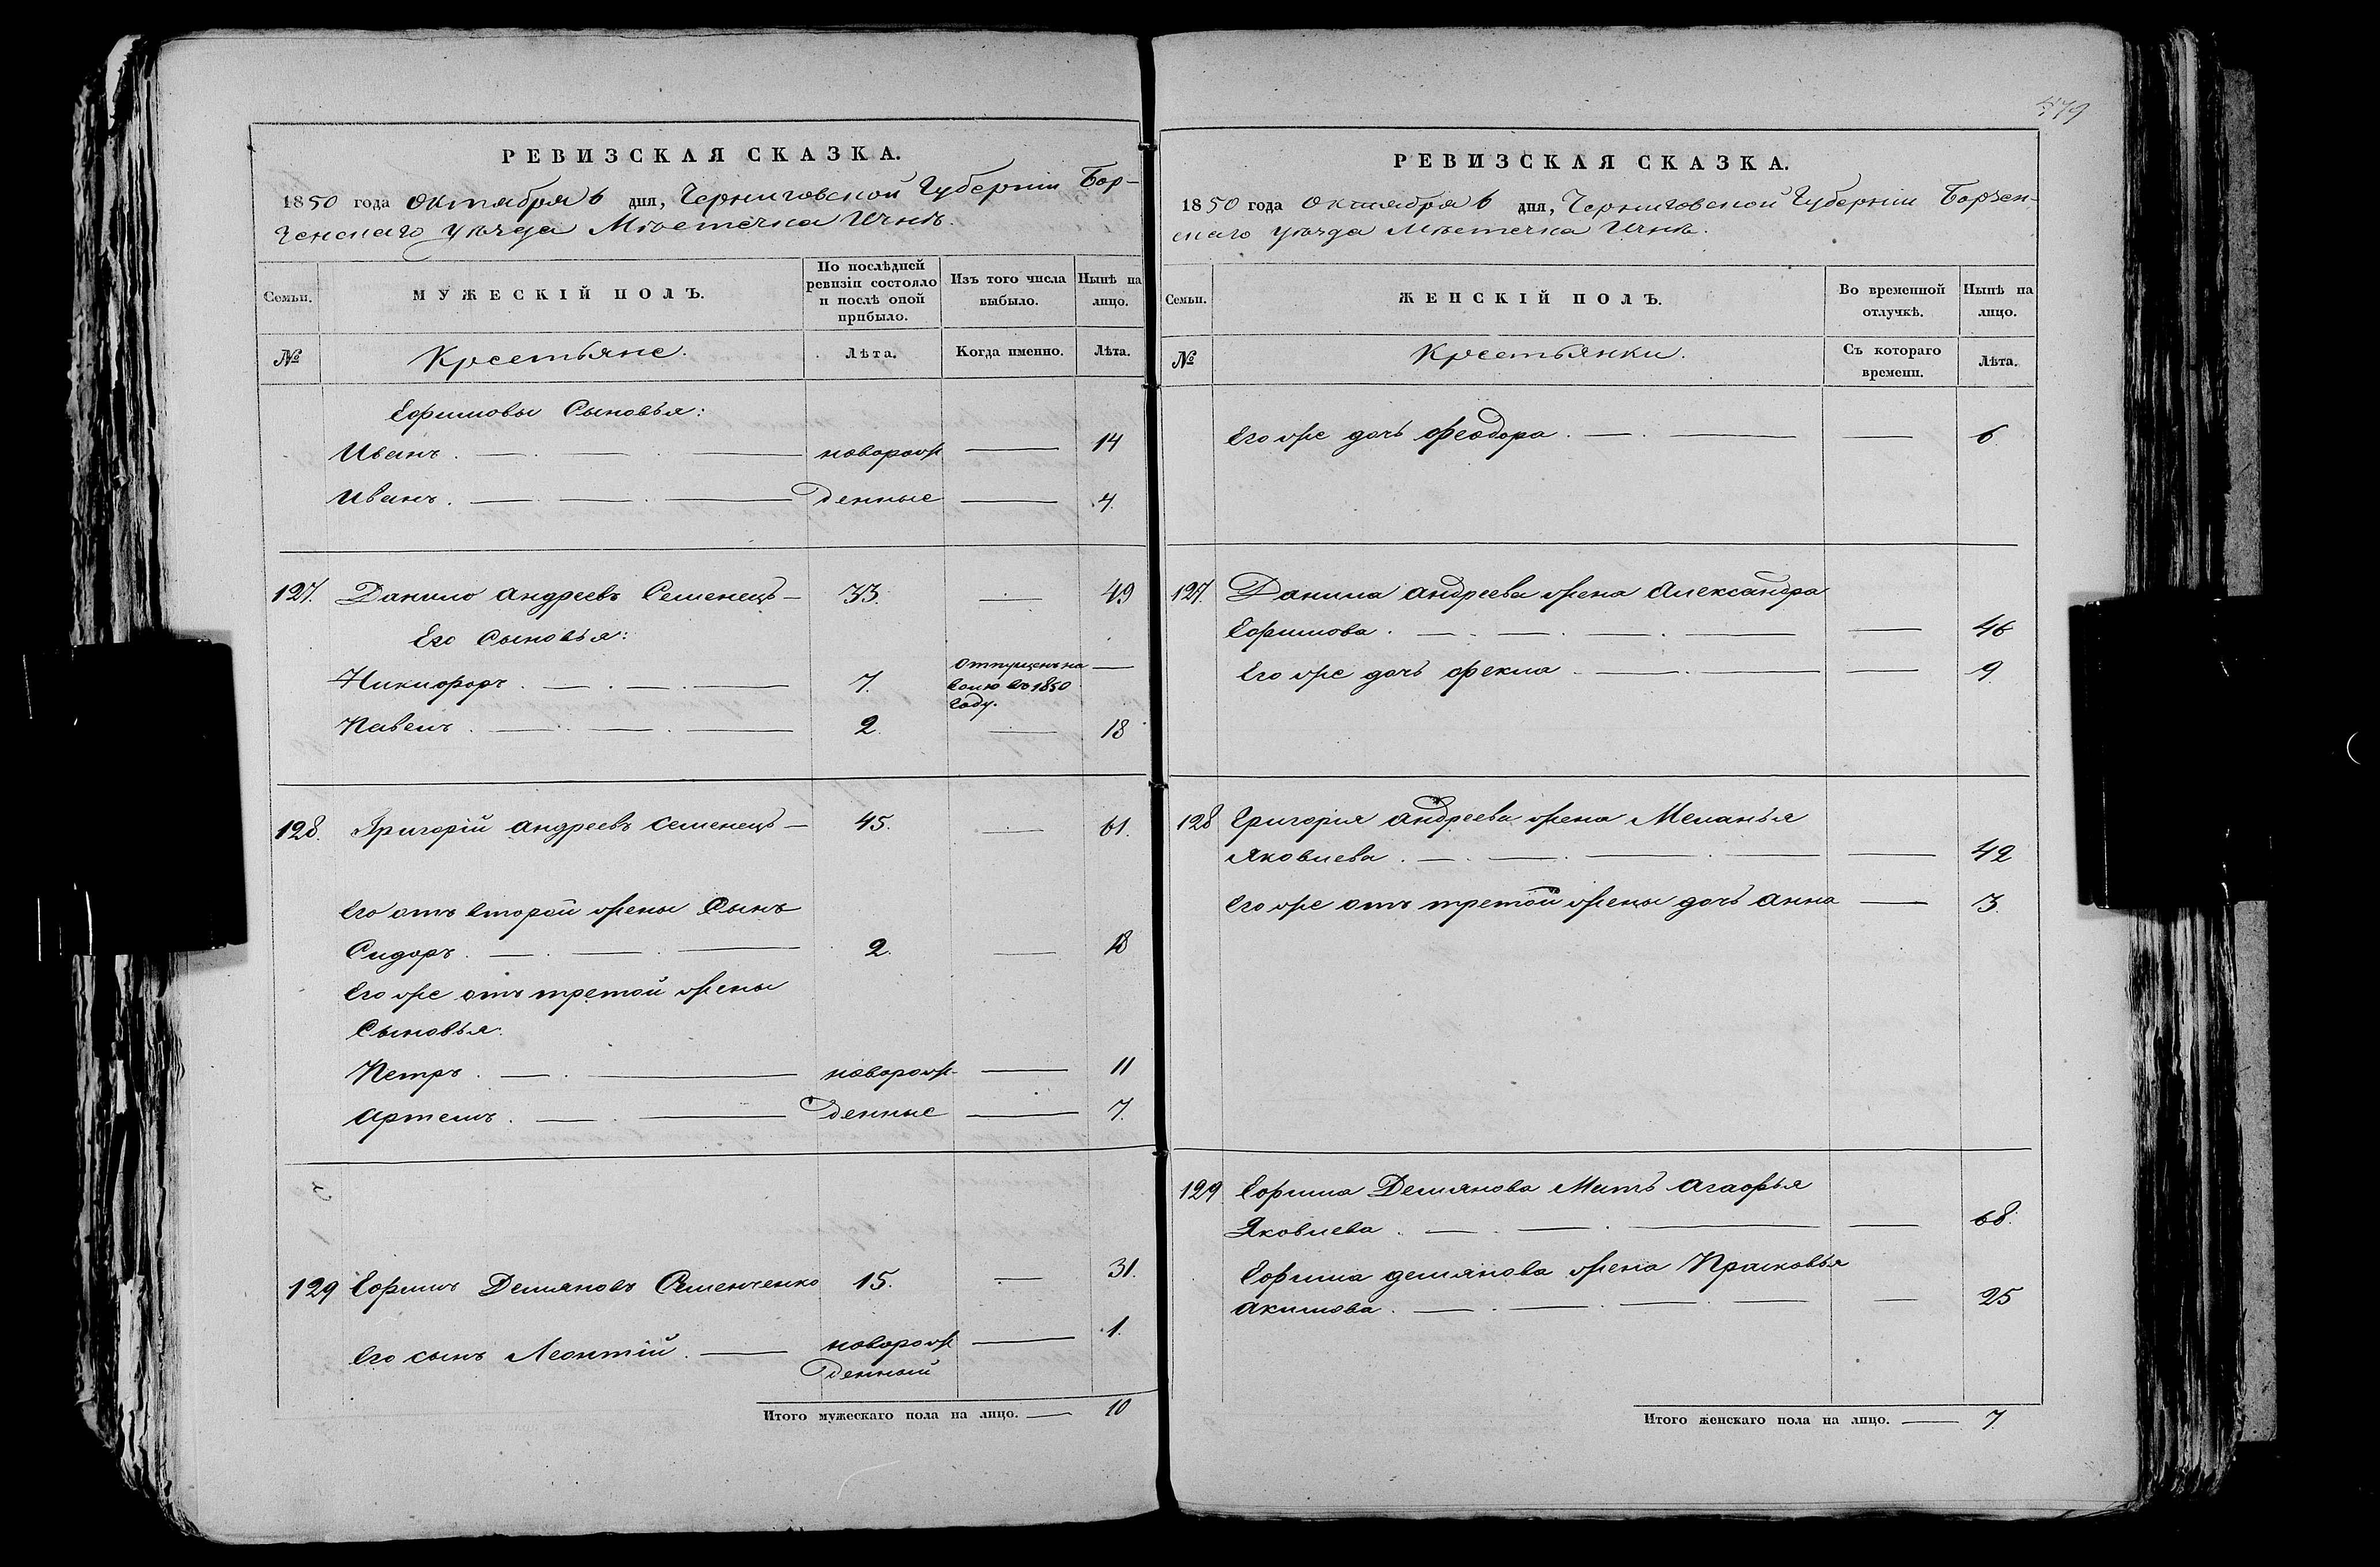 РЕВИЗСКАЯ СКАЗКА.
1850 года Октября 6 дня, Черниговской Губерніи Бор-
зенскаго уѣзда Мѣстечка Ичнѣ.
Семьи.
МУЖЕСКІЙ ПОЛЪ.
По послѣдней ревизіи состояло и послѣ оной прибыло.
Изъ того числа выбыло.
Нынѣ на лицо.
№
Крестьяне.
Лѣта.
Когда именно.
Лѣта.
Ефимовы Сыновья:
Иванъ. новорож 14
Иванъ. денные 4.
127. Данило Андреевъ Семенецъ 33. 49
Его Сыновья:
Никифоръ. 7. отпущенъ на
волю въ 1850
году.
Павелъ. 2. 18
128. Григорій Андреевъ Семенецъ 45. 61.
Его отъ второй жены Сынъ
Сидоръ. 2. 18
Его же отъ третой жены
Сыновья.
Петръ. новорож- 11
Артемъ. денные 7.
129 Ефимъ Демяновъ Семенченко 15. 31.
Его сынъ Леонтій. новорож 1.
денный
Итого мужескаго пола на лицо. 10
479
РЕВИЗСКАЯ СКАЗКА.
1850 года Октября 6 дня, Черниговской Губерніи Борзен-
скаго уѣзда Мѣстечка Ичнѣ.
Семьи.
ЖЕНСКІЙ ПОЛЪ.
Во временной отлучкѣ.
Нынѣ на лицо.
№
Крестьянки.
Съ котораго времени.
Лѣта.
Его же дочь Феодора. 6
127. Данила Андреева жена Александра
Ефимова. 46
Его же дочь Фекла 9.
128 Григорія Андреева жена Меланья
Яковлева. 42
Его же отъ третой жены дочь Анна 3.
129 Ефима Демянова Мать Агафья
Яковлева. 68.
Ефима Демянова жена Прасковья
Акимова. 25
Итого женскаго пола на лицо. 7.